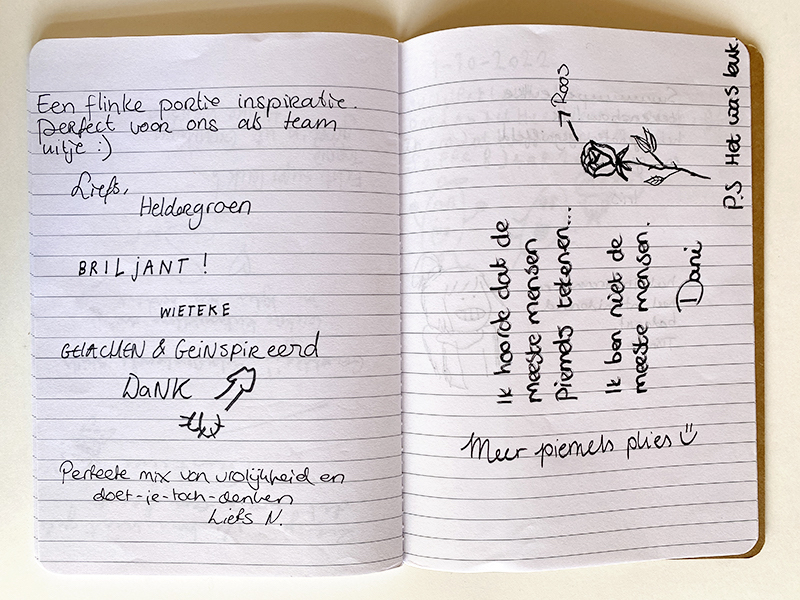 Een flinke portie inspiratie.
perfect voor ons als team
uitje :)
Liefs,
Heldergroen
BRILjANT !
WIETEKE
GELACHEN & GEiNSPiREERD
DaNK
Perfecte mix van vrolijkheid en
doet-je-toch-denken
Liefs N.
Roos
Ik hoorde dat de
meeste mensen
piemels tekenen...
Ik ben niet de
meeste mensen.
Dani
P.S Het was leuk
Meer piemels plies